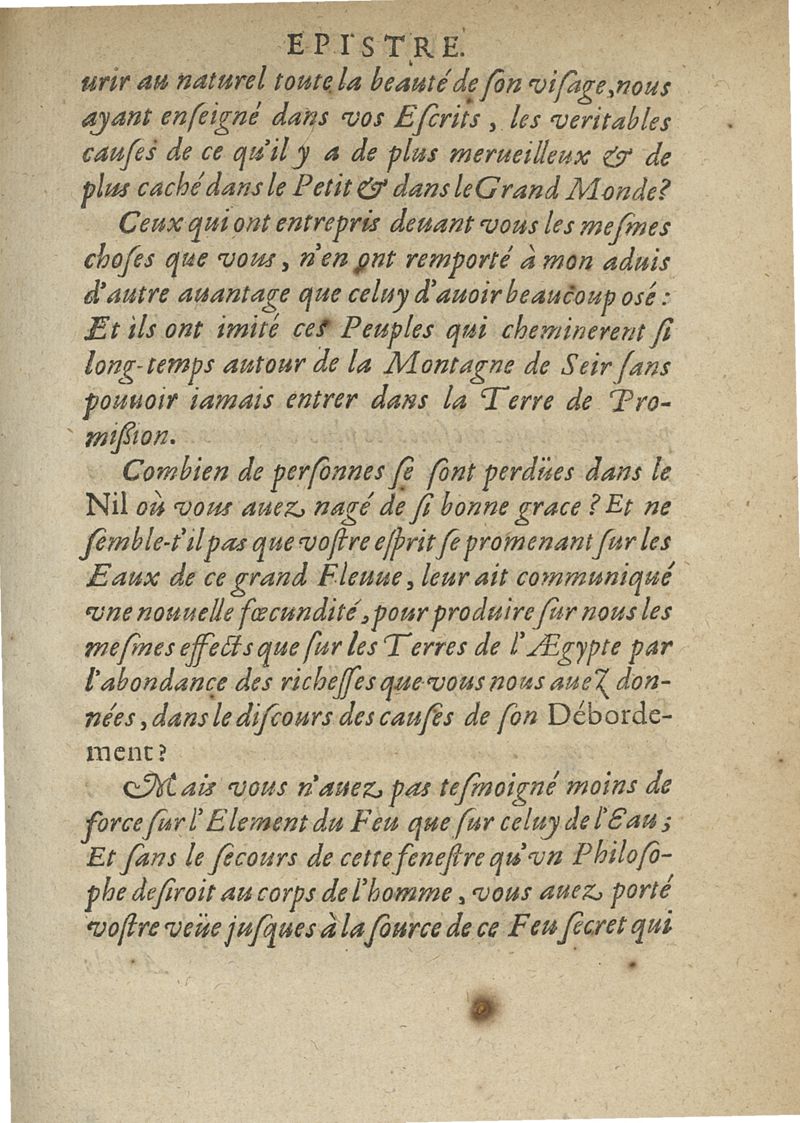 EPISTRE.
urir au naturel toute la beauté de ſon viſage, nous
ayant enſeigné dans vos Eſcrits, les veritables
cauſes de ce qu'il y a de plus merueilleux & de
plus caché dans le Petit & dans le Grand Monde?
Ceux qui ont entrepris deuant vous les meſmes
choſes que vous, n'en ont remporté à mon aduis
d'autre auantage que celuy d'auoir beaucoup osé:
Et ils ont imité ces Peuples qui cheminerent ſi
long-temps autour de la Montagne de Seir ſans
pouuoir iamais entrer dans la Terre de Pro-
miſſion.
Combien de perſonnes ſe ſont perdües dans le
Nil où vous auez nagé de ſi bonne grace? Et ne
ſemble-t'il pas que voſtre eſprit ſe promenant ſur les
Eaux de ce grand Fleuue, leur ait communiqué
vne nouuelle fœcundité, pour produire ſur nous les
meſmes effects que ſur les Terres de l'Ægypte par
l'abondance des richeſſes que vous nous auez don-
nées, dans le diſcours des cauſes de ſon Déborde-
ment?
Mais vous n'auez pas teſmoigné moins de
force ſur l'Element du Feu que ſur celuy de l'Eau;
Et ſans le ſecours de cette feneſtre qu'vn Philoſo-
phe deſiroit au corps de l'homme, vous auez porté
voſtre veüe juſques à la ſource de ce Feu ſecret qui